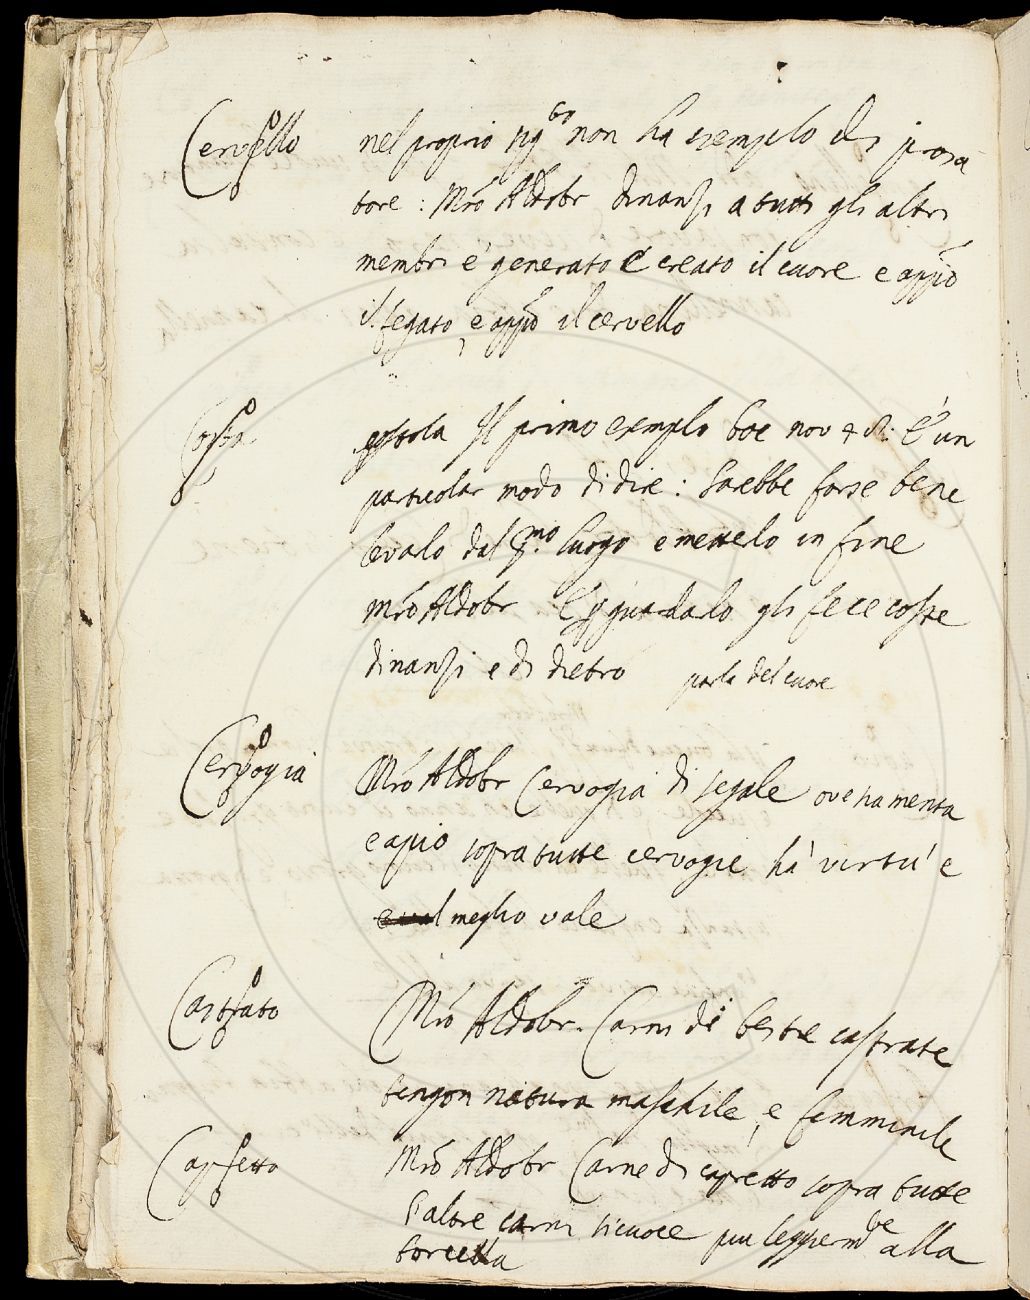 Cervello nel proprio sig.to non ha esempio di prosa
tore: Mro Aldobr dinanzi a tutti gli altri
membri è generato e creato il cuore e appo
il fegato, e appo il cervello
Costa costola Il primo esemplo boc nov 4 è un
particolar modo di dire: sarebbe forse bene
levalo dal pmo luogo e metterlo in fine
Mro Aldobr E p guardarlo gli fece coste
dinanzi e di dietro parla del cuore
Cervogia Mro Aldobr Cervogia di segale ove ha menta
e apio sopra tutte cervogie hà virtù e
e val meglio vale
Castrato Mro Aldobr. Carni di bestie castrate
tengon natura maschile, e femminile
Capretto Mro Aldobr Carne di capretto sopra tutte
l'altre carni si cuoce piu leggierm.te alla
forcella